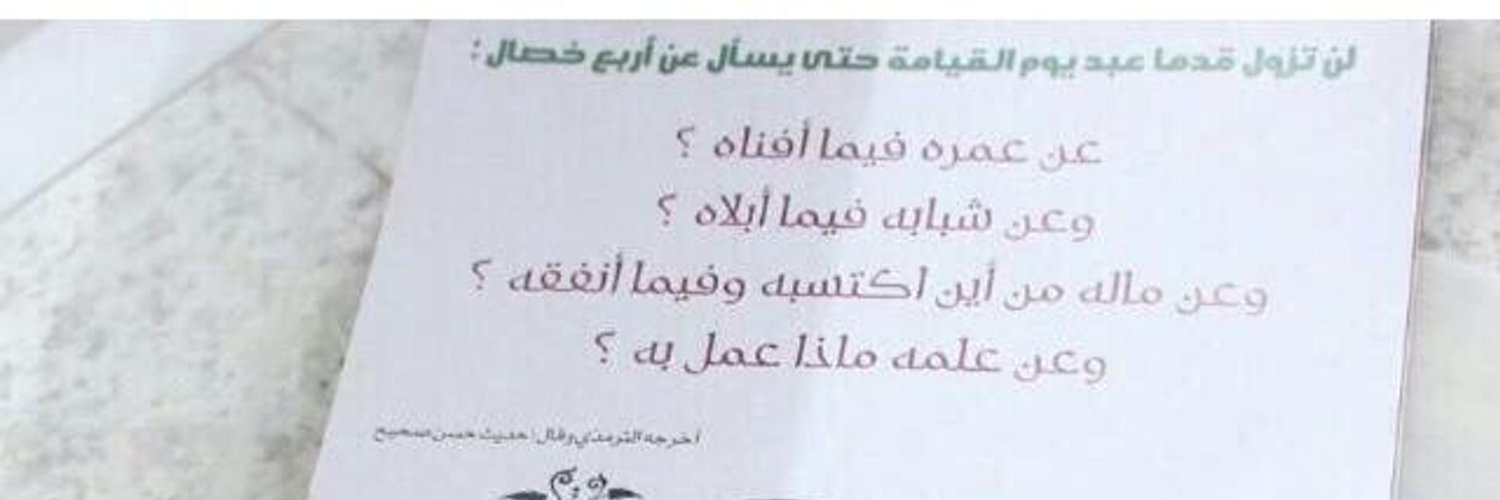 لن تزول قدما عبد يوم القيامة حتى يسأل عن أربع خصال :
عن عمره فيما أفناه ؟
وعن شبابه فيما أبلاه ؟
وعن ماله من أين اكتسبه وفيما أنفقه ؟
وعن علمه ماذا عمل به ؟
أخرجه الترمذي وقال: حديث حسن صحيح